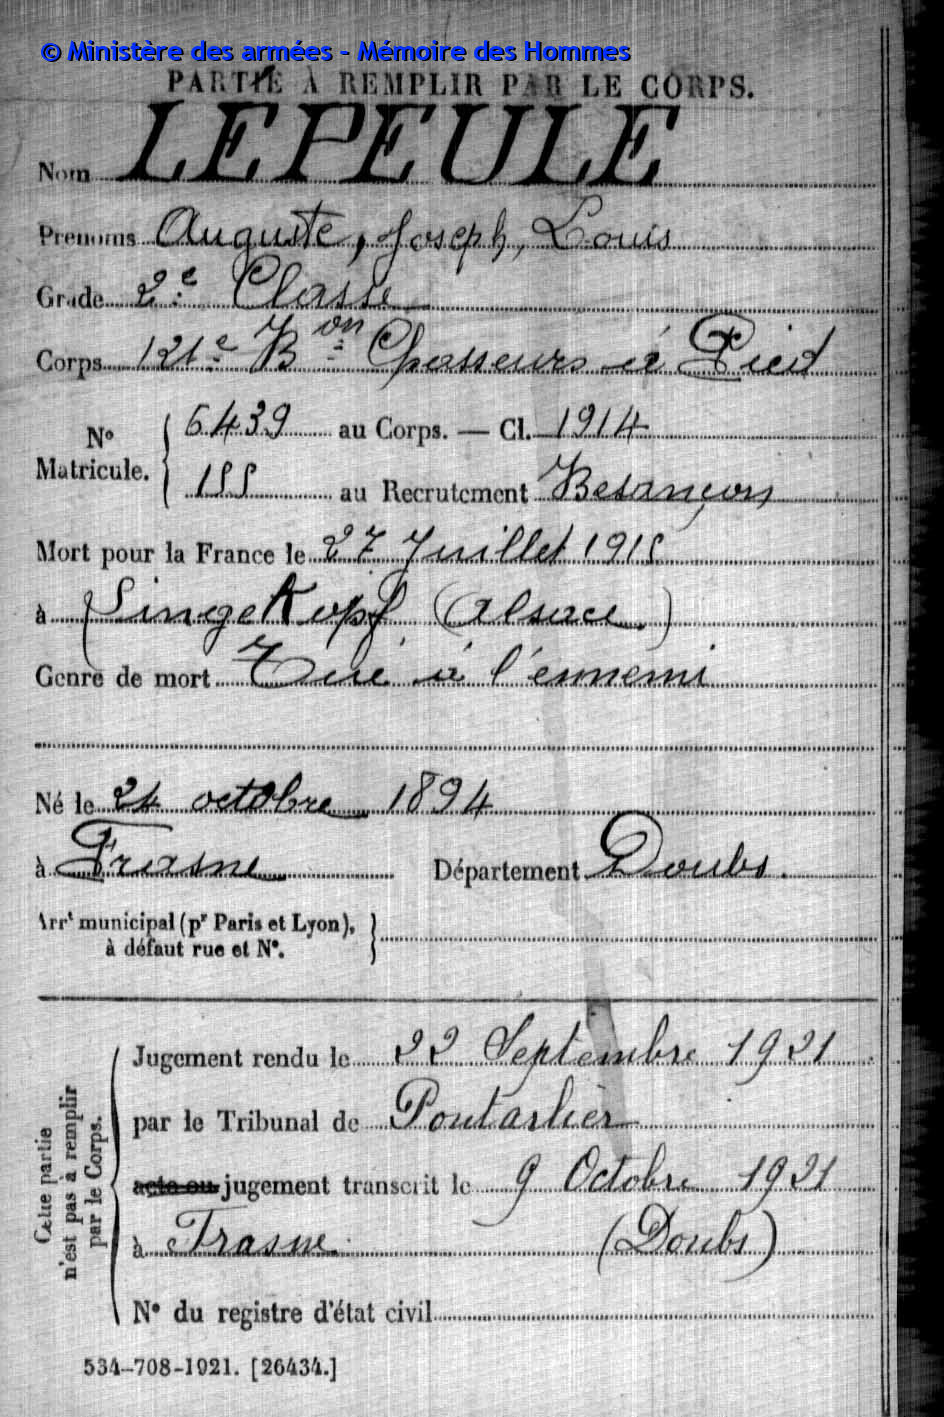 © Ministère des armées - Mémoire des Hommes
PARTIE À REMPLIR PAR LE CORPS.
Nom LEPEULE
Prénoms Auguste, Joseph, Louis
Grade 2e Classe
Corps 121e Bon Chasseurs à Pied
N° Matricule. { 6439 au Corps. — Cl. 1914
155 au Recrutement Besançon
Mort pour la France le 27 Juillet 1915
à Lingekopf (Alsace)
Genre de mort Tué à l'ennemi
Né le 24 octobre 1894
à Frasne Département Doubs.
Arrt municipal (pr Paris et Lyon),
à défaut rue et N°.
Cette partie n'est pas à remplir par le Corps.
Jugement rendu le 22 Septembre 1921
par le Tribunal de Pontarlier
acte ou jugement transcrit le 9 Octobre 1921
à Frasne (Doubs)
N° du registre d'état civil
534-708-1921. [26434.]